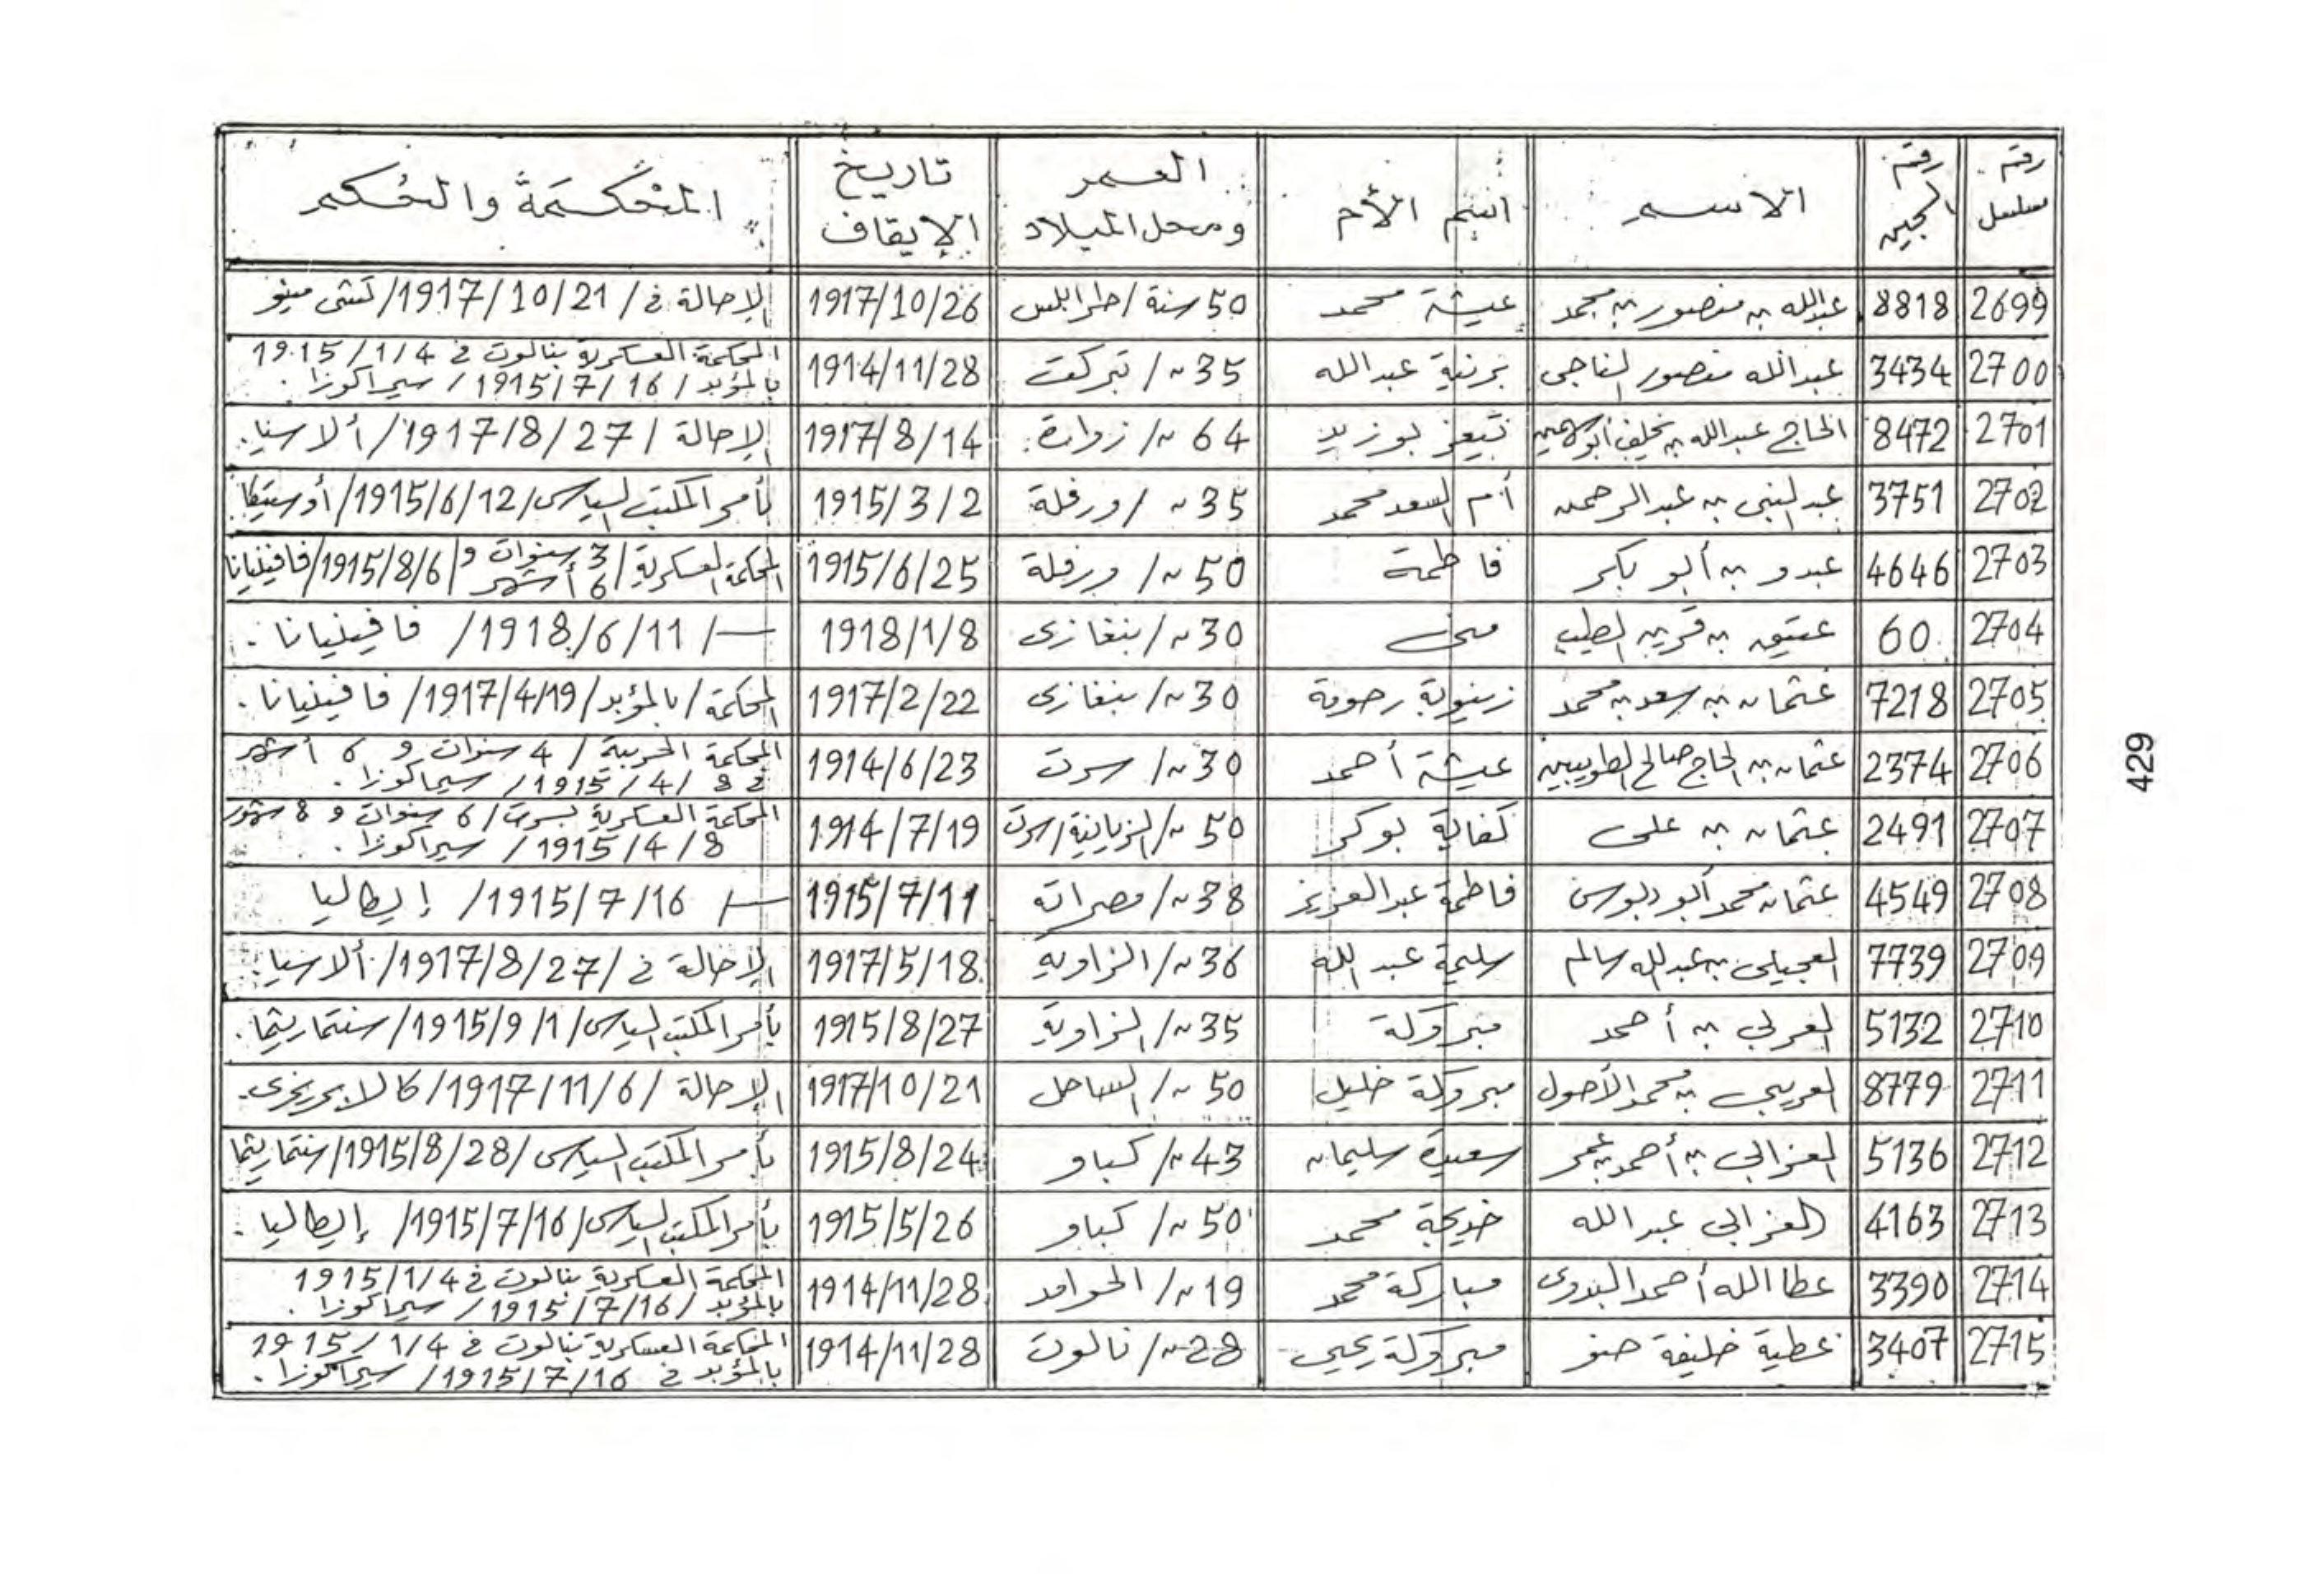 رقم مسلسل | رقم السجين | الاسم | اسم الأم | العمر ومحل الميلاد | تاريخ الإيقاف | المحكمة والحكم
2699 | 8818 | عبدالله بن منصور بن محمد | عيشة محمد | 50 سنة / طرابلس | 1917/10/26 | الإحالة في / 1917/10/21 / تشتى مينو
2700 | 3434 | عبدالله منصور الناجى | برنية عبدالله | 35 س / تبركت | 1914/11/28 | المحكمة العسكرية بنالوت في 1915/1/4
بالمؤبد / 1915/7/16 / سيراكوزا.
2701 | 8472 | الحاج عبدالله بن يخلف | بوزيد | 64 س / زوارة. | 1917/8/14 | الإحالة / 1917/8/27 / ألاسيا.
2702 | 3751 | عبدالنبى بن عبدالرحمن | أم السعد محمد | 35 س / ورفلة | 1915/3/2 | بأمر المكتب السياسى / 1915/6/12 / أوستيكا
2703 | 4646 | عبدو بن أبو بكر | فاطمة | 50 س / ورفلة | 1915/6/25 | المحكمة العسكرية / 3 سنوات و 6 أشهر / 1915/8/6 / فافينيانا
2704 | 60 | عتيق بن الطيب | منى | 30 س / بنغازى | 1918/1/8 | — / 1918/6/11 / فافينيانا.
2705 | 7218 | عثمان بن سعد بن محمد | زينوبة رحومة | 30 س / بنغازى | 1917/2/22 | المحكمة / بالمؤبد / 1917/4/19 / فافينيانا.
2706 | 2374 | عثمان بن الحاج صالح | عيشة أحمد | 30 س / سرت | 1914/6/23 | المحكمة الحربية / 4 سنوات و 6 أشهر
في 8 / 4 / 1915 / سيراكوزا.
2707 | 2491 | عثمان بن على | كفاية بوكر | 50 س / الزيانية / سرت | 1914/7/19 | المحكمة العسكرية بسرت / 6 سنوات و 8 شهور
8 / 4 / 1915 / سيراكوزا.
2708 | 4549 | عثمان محمد أبو دبوس | فاطمة عبدالعزيز | 38 س / مصراتة | 1915/7/11 | — / 1915/7/16 / إيطاليا
2709 | 7739 | العجيلى بن عبدالله سالم | سليمة عبدالله | 36 س / الزاوية | 1917/5/18 | الإحالة في / 1917/8/27 / ألاسيا.
2710 | 5132 | العربى بن أحمد | مبروكة | 35 س / الزاوية | 1915/8/27 | بأمر المكتب السياسى / 1915/9/1 / سنتماريثا.
2711 | 8779 | العريبى بن محمد الأحول | مبروكة خليل | 50 س / الساحل | 1917/10/21 | الإحالة / 1917/11/6 / كالابريزى.
2712 | 5136 | العزابى بن أحمد بن عمر | سعيدة سليمان | 43 س / كباو | 1915/8/24 | بأمر المكتب السياسى / 1915/8/28 / سنتماريثا
2713 | 4163 | العزابى عبدالله | خديجة محمد | 50 س / كباو | 1915/5/26 | بأمر المكتب السياسى / 1915/7/16 / إيطاليا.
2714 | 3390 | عطا الله أحمد البدوى | مباركة محمد | 19 س / الحوامد | 1914/11/28 | المحكمة العسكرية بنالوت في 1915/1/4
بالمؤبد / 1915/7/16 / سيراكوزا.
2715 | 3407 | عطية خليفة ضو | مبروكة يحيى | 28 س / نالوت | 1914/11/28 | المحكمة العسكرية بنالوت في 1915/1/4
بالمؤبد في 1915/7/16 / سيراكوزا.
429